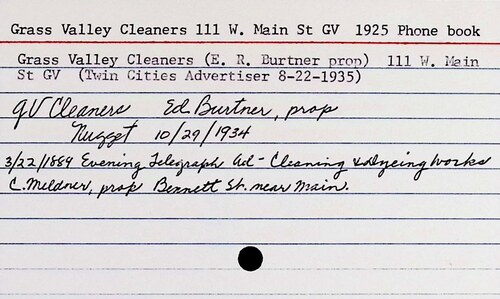 Grass Valley Cleaners 111 W. Main St GV 1925 Phone book
Grass Valley Cleaners (E. R. Burtner prop) 111 W. Main
St GV (Twin Cities Advertiser 8-22-1935)
GV Cleaners Ed Burtner, prop
Nugget 10/29/1934
3/22/1889 Evening Telegraph Ad - Cleaning & Dyeing Works
C. Meldner, prop Bennett St. near Main.